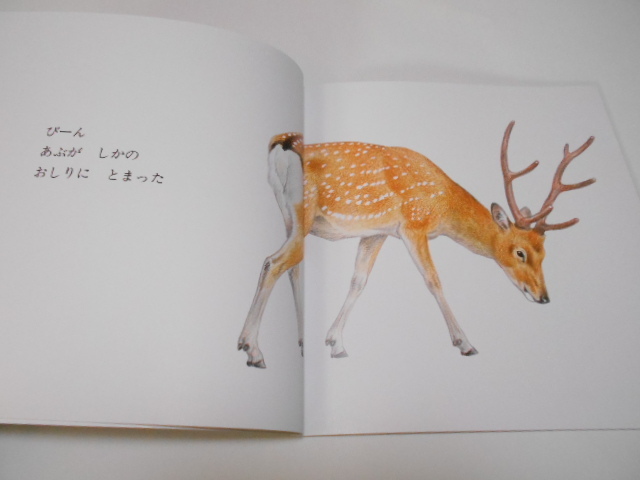 びーん
あぶが しかの
おしりに とまった